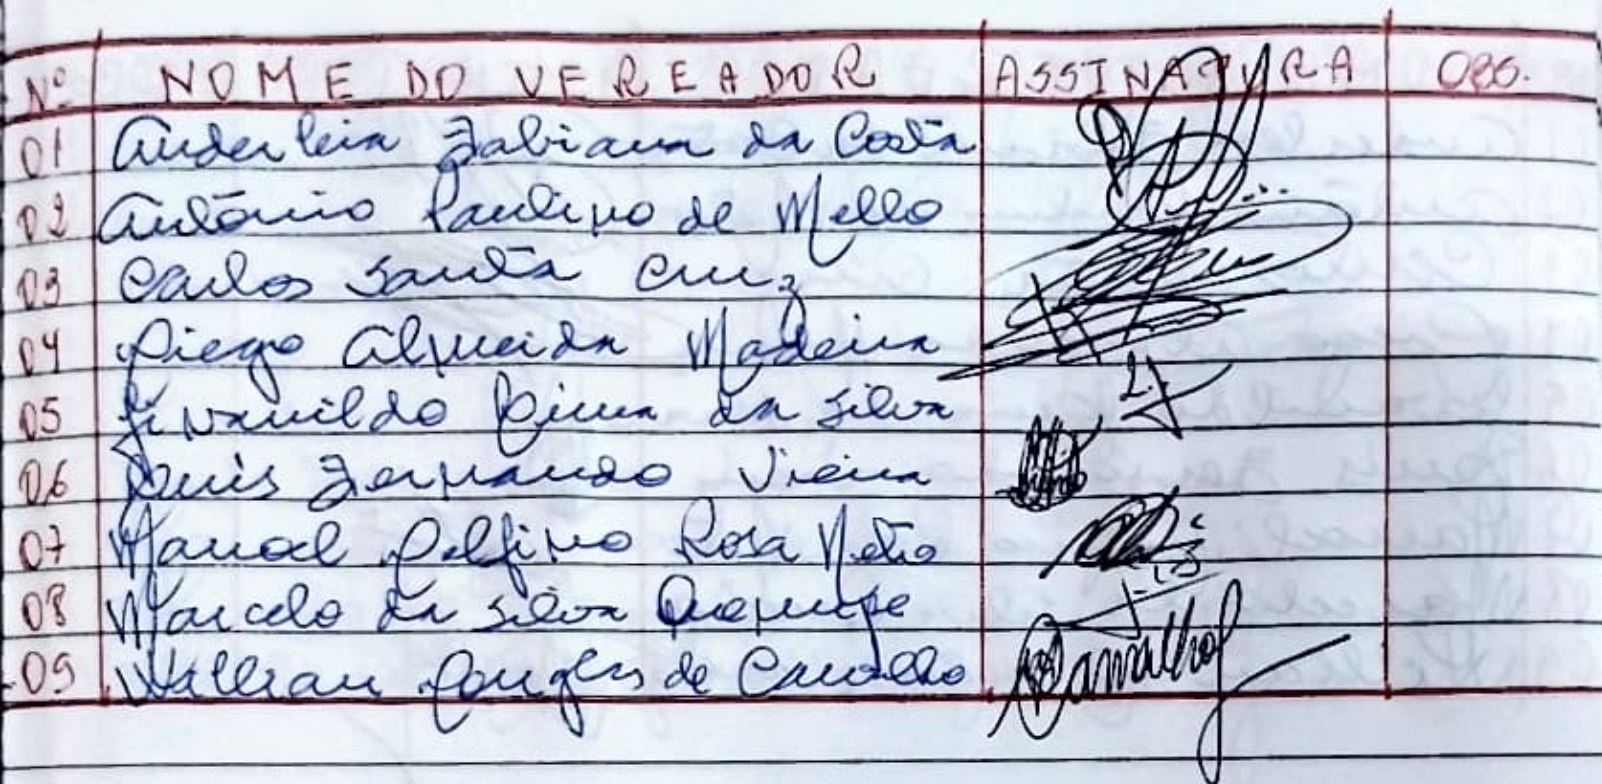 Nº NOME DO VEREADOR ASSINATURA OBS.
01 Anderleia Fabiana da Costa
02 Antônio Paulino de Mello
03 Carlos Santa Cruz
04 Diego Almeida Madeira
05 Givanildo Lima da Silva
06 Luis Fernando Vieira
07 Manoel Delfino Rosa Neto
08 Marcelo da Silva Querupe
09 Willian Douglas de Carvalho Carvalho